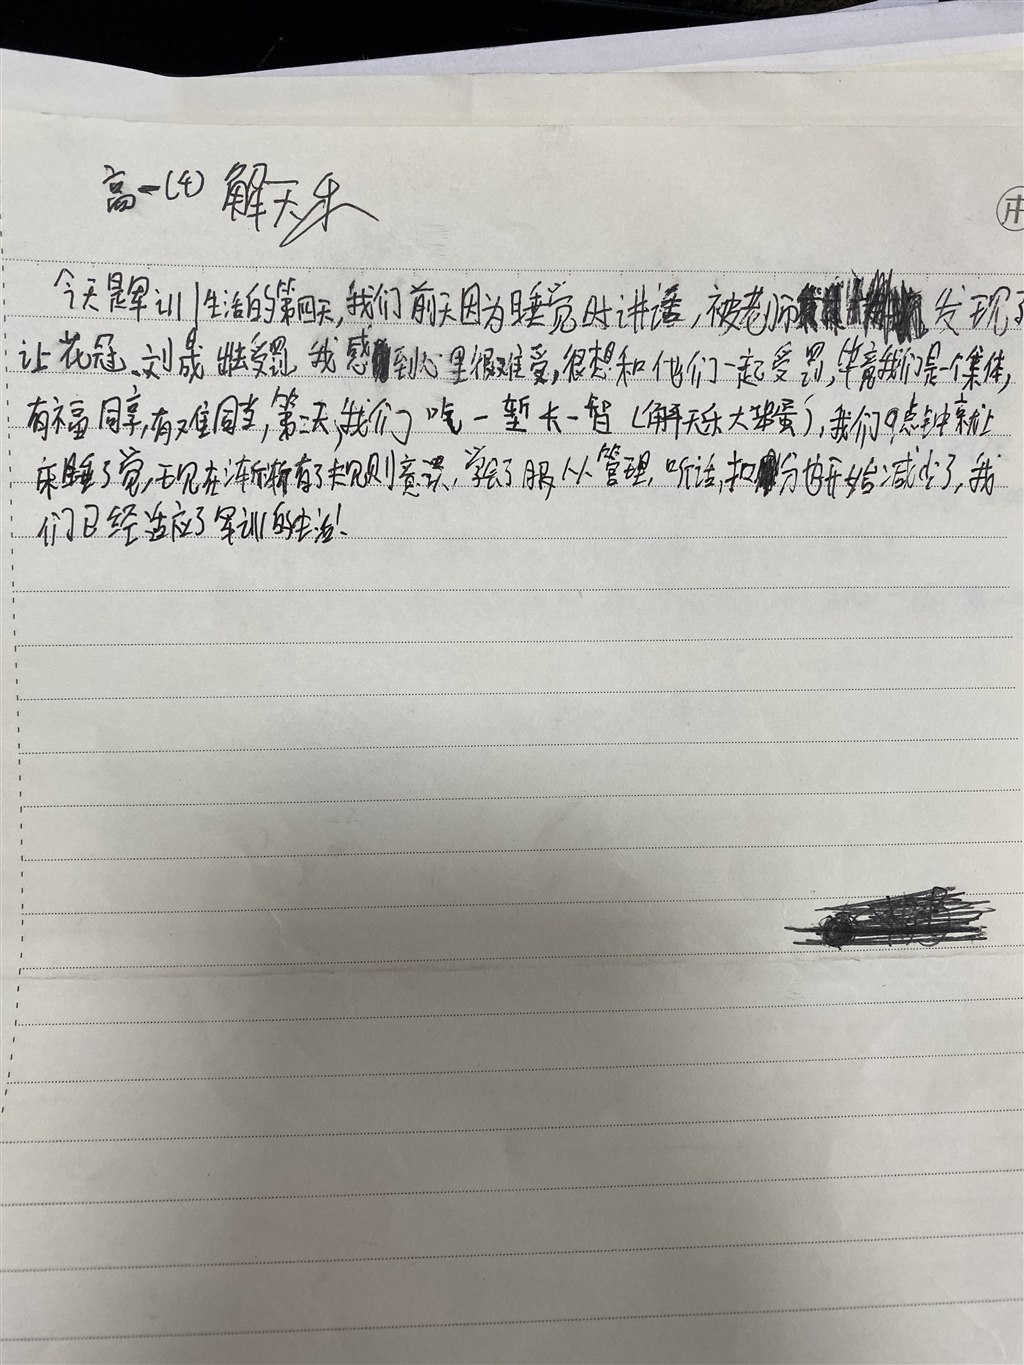 高一(4) 解天乐
今天是军训生活的第四天,我们前天因为睡觉时讲话,被老师发现了
让花冠、刘晟出去受罚,我感到心里很难受,很想和他们一起受罚,毕竟我们是一个集体,
有福同享,有难同当,第三天,我们吃一堑长一智(解天乐大笨蛋),我们9点钟就上
床睡了觉,现在渐渐有了规则意识,学会了服从管理,听话,扣分也开始减少了,我
们已经适应了军训的生活!